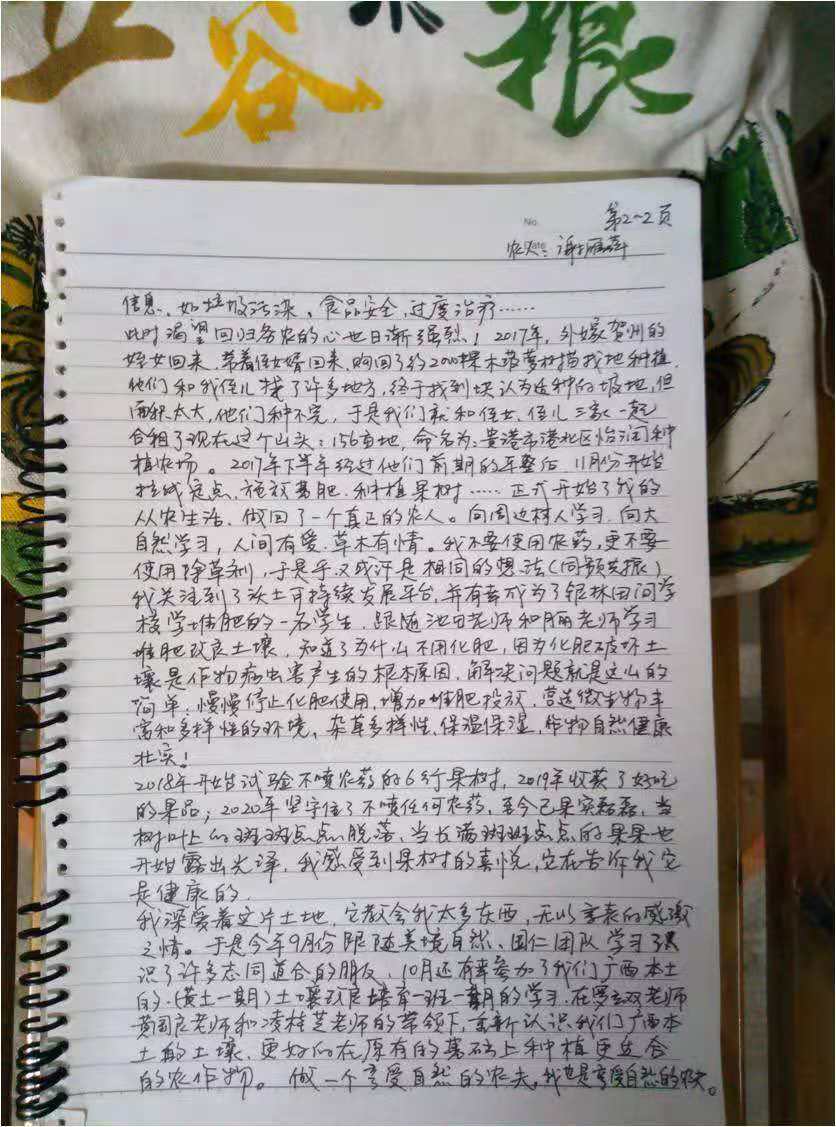 五谷杂粮
No.
第2~2页
Date
农人：谢
信息、如垃圾污染、食品安全、过度治疗……
此时渴望回归务农的心也日渐强烈！2017年，外嫁贺州的
侄女回来，带着侄女婿回来，购回了约2000棵木菠萝树苗找地种植，
他们和我侄儿找了许多地方，终于找到块认为适种的坡地，但
面积太大，他们种不完，于是我们就和侄女、侄儿三家一起
合租了现在这个山头：156亩地，命名为：贵港市港北区怡润种
植农场。2017年下半年经过他们前期的平整后，11月份开始
拉线定点、施放基肥、种植果树……正式开始了我的
从农生活，做回了一个真正的农人。向周边村人学习，向大
自然学习，人间有爱，草木有情。我不要使用农药，更不要
使用除草剂，于是乎又或许是相同的想法（同频共振）
我关注到了沃土可持续发展平台，并有幸成为了银林田间学
校学堆肥的一名学生，跟随池田老师和丽老师学习
堆肥改良土壤，知道了为什么不用化肥，因为化肥破坏土
壤是作物病虫害产生的根本原因，解决问题就是这么的
简单，慢慢停止化肥使用，增加堆肥投放，营造微生物丰
富和多样性的环境，杂草多样性，保温保湿，作物自然健康
壮实！
2018年开始试验不喷农药的6行果树，2019年收获了好吃
的果品；2020年坚守住了不喷任何农药，至今已果实磊磊，当
树叶上的斑斑点点脱落，当长满斑斑点点的果果也
开始露出光泽，我感受到果树的喜悦，它在告诉我它
是健康的，
我深爱着这片土地，它教会我太多东西，无以言表的感激
之情。于是今年9月份跟随美境自然、国仁团队学习认
识了许多志同道合的朋友，10月还有幸参加了我们广西本土
的（黄土一期）土壤改良培育一班一期的学习，在双老师
黄国良老师和凌桂芝老师的带领下，重新认识我们广西本
土的土壤，更好的在原有的基础上种植更适合
的农作物。做一个享受自然的农夫，我也是享受自然的农夫。